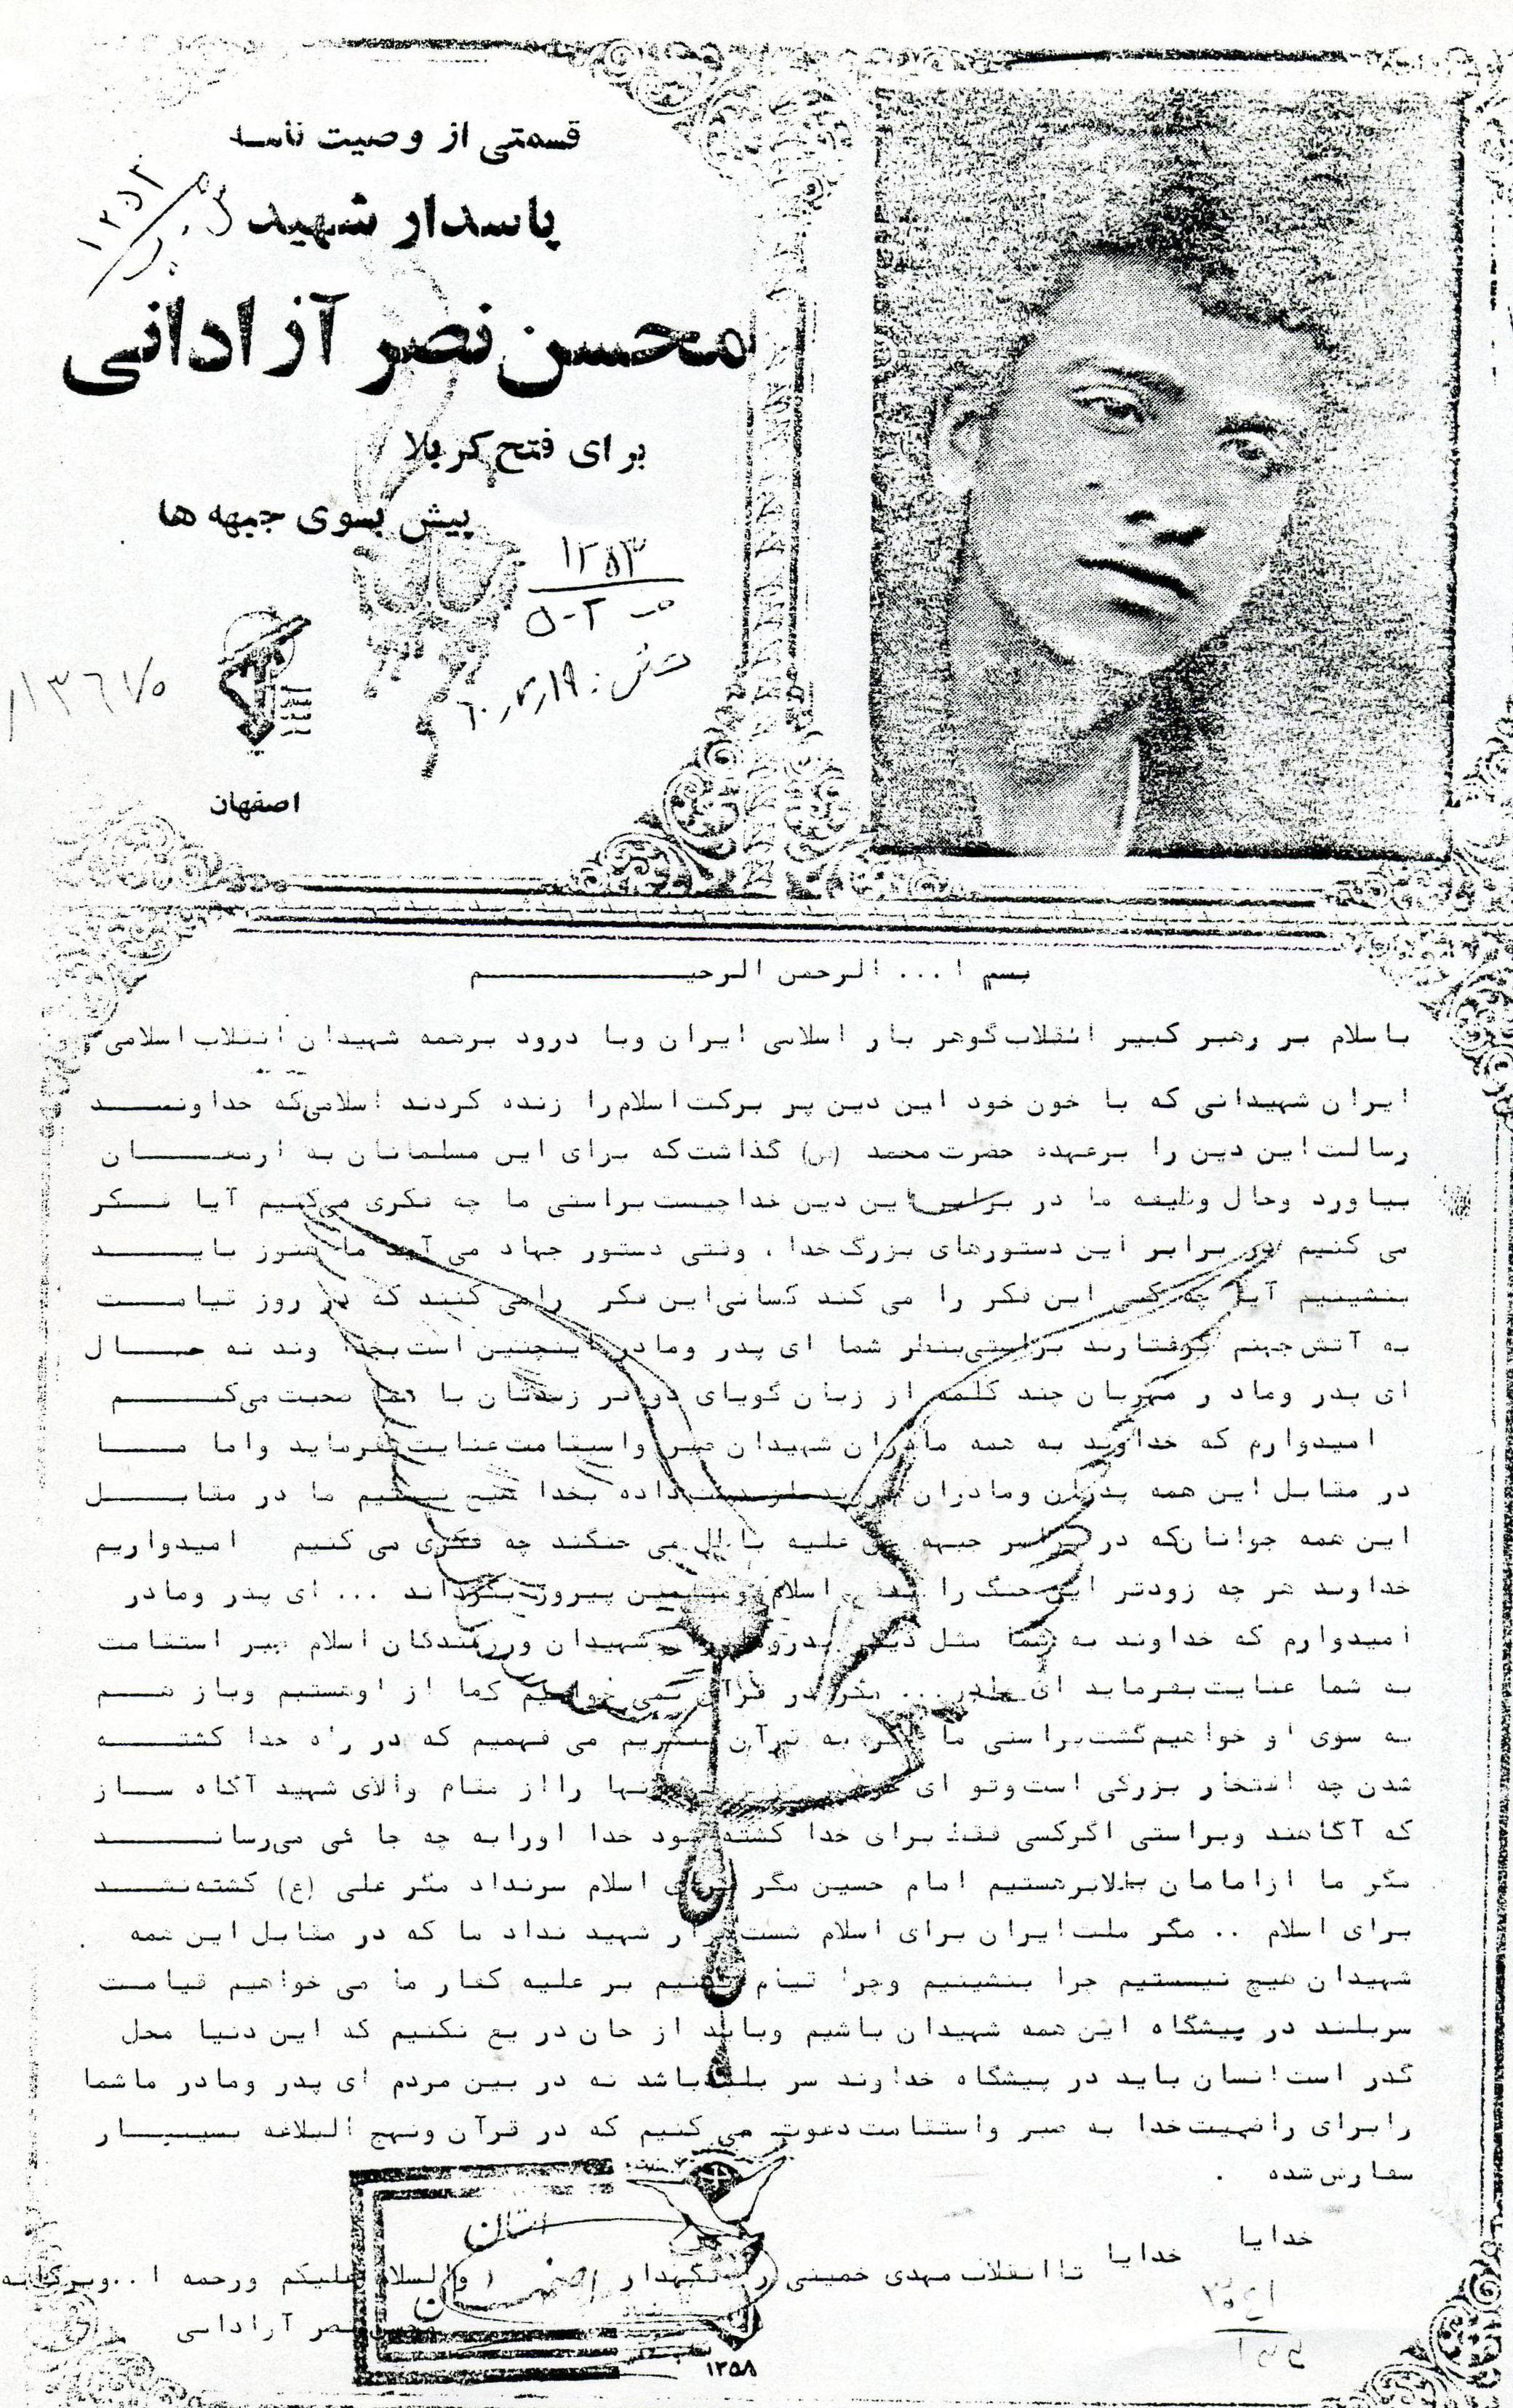 قسمتی از وصیت نامه
پاسدار شهید
محسن نصر آزادانی
برای فتح کربلا
پیش بسوی جبهه ها
۱۲۵۳
اصفهان
بسم ا ... الرحمن الرحیم
باسلام بر رهبر کبیر انقلاب گوهر بار اسلامی ایران وبا درود برهمه شهیدان انقلاب اسلامی
ایران شهیدانی که با خون خود این دین پر برکت اسلام را زنده کردند اسلامی که خداوند
رسالت این دین را برعهده حضرت محمد (ص) گذاشت که برای این مسلمانان به ارمغان
بیاورد وحال وظیفه ما در برابر این دین خدا چیست براستی ما چه فکری می‌کنیم آیا فکر
می کنیم در برابر این دستورهای بزرگ خدا ، وقتی دستور جهاد می آید ما هنوز باید
بنشینیم آیا چه کسی این فکر را می کند کسانی این فکر را می کنند که در روز قیامت
به آتش جهنم گرفتارند براستی بنظر شما ای پدر ومادر اینچنین است بخداوند نه حال
ای پدر وماد ر مهربان چند کلمه از زبان گویای فرزندتان با شما صحبت می‌کنم
امیدوارم که خداوند به همه مادران شهیدان صبر واستقامت عنایت بفرماید واما ما
در مقابل این همه پدران ومادران فرزند از دست داده بخدا هیچ نیستیم ما در مقابل
این همه جوانان که در سراسر جبهه حق علیه باطل می جنگند چه فکری می کنیم امیدواریم
خداوند هر چه زودتر این جنگ را بنفع اسلام ومسلمین پیروز بگرداند ... ای پدر ومادر
امیدوارم که خداوند به شما مثل دیگر شهیدان ورزمندگان اسلام صبر استقامت
به شما عنایت بفرماید ای مادر ... مگر در قرآن نمی خوانیم که ما از اوهستیم وباز هم
به سوی او خواهیم گشت براستی ما اگر به قرآن بنگریم می فهمیم که در راه خدا کشته
شدن چه افتخار بزرگی است وتو ای را از مقام والای شهید آگاه ساز
که آگاهند وبراستی اگرکسی فقط برای خدا کشته شود خدا اورابه چه جا ئی می‌رساند
مگر ما ازامامان بالاترهستیم امام حسین مگر برای اسلام سرنداد مگر علی (ع) کشته نشد
برای اسلام .. مگر ملت ایران برای اسلام شصت هزار شهید نداد ما که در مقابل این همه
شهیدان هیچ نیستیم چرا بنشینیم وچرا قیام نکنیم بر علیه کفار ما می خواهیم قیامت
سربلند در پیشگاه این همه شهیدان باشیم وباید از جان دریغ نکنیم که این دنیا محل
گذر است انسان باید در پیشگاه خداوند سر بلند باشد نه در بین مردم ای پدر ومادر ماشما
را برای رانهیت خدا به صبر واستقامت دعوت می کنیم که در قرآن ونهج البلاغه بسیار
سفارش شده .
خدایا خدایا تا انقلاب مهدی خمینی را نگهدار والسلام علیکم ورحمه ا ..وبرکاته
محسن نصر آزادانی
استان
اصفهان
۱۳۵۸